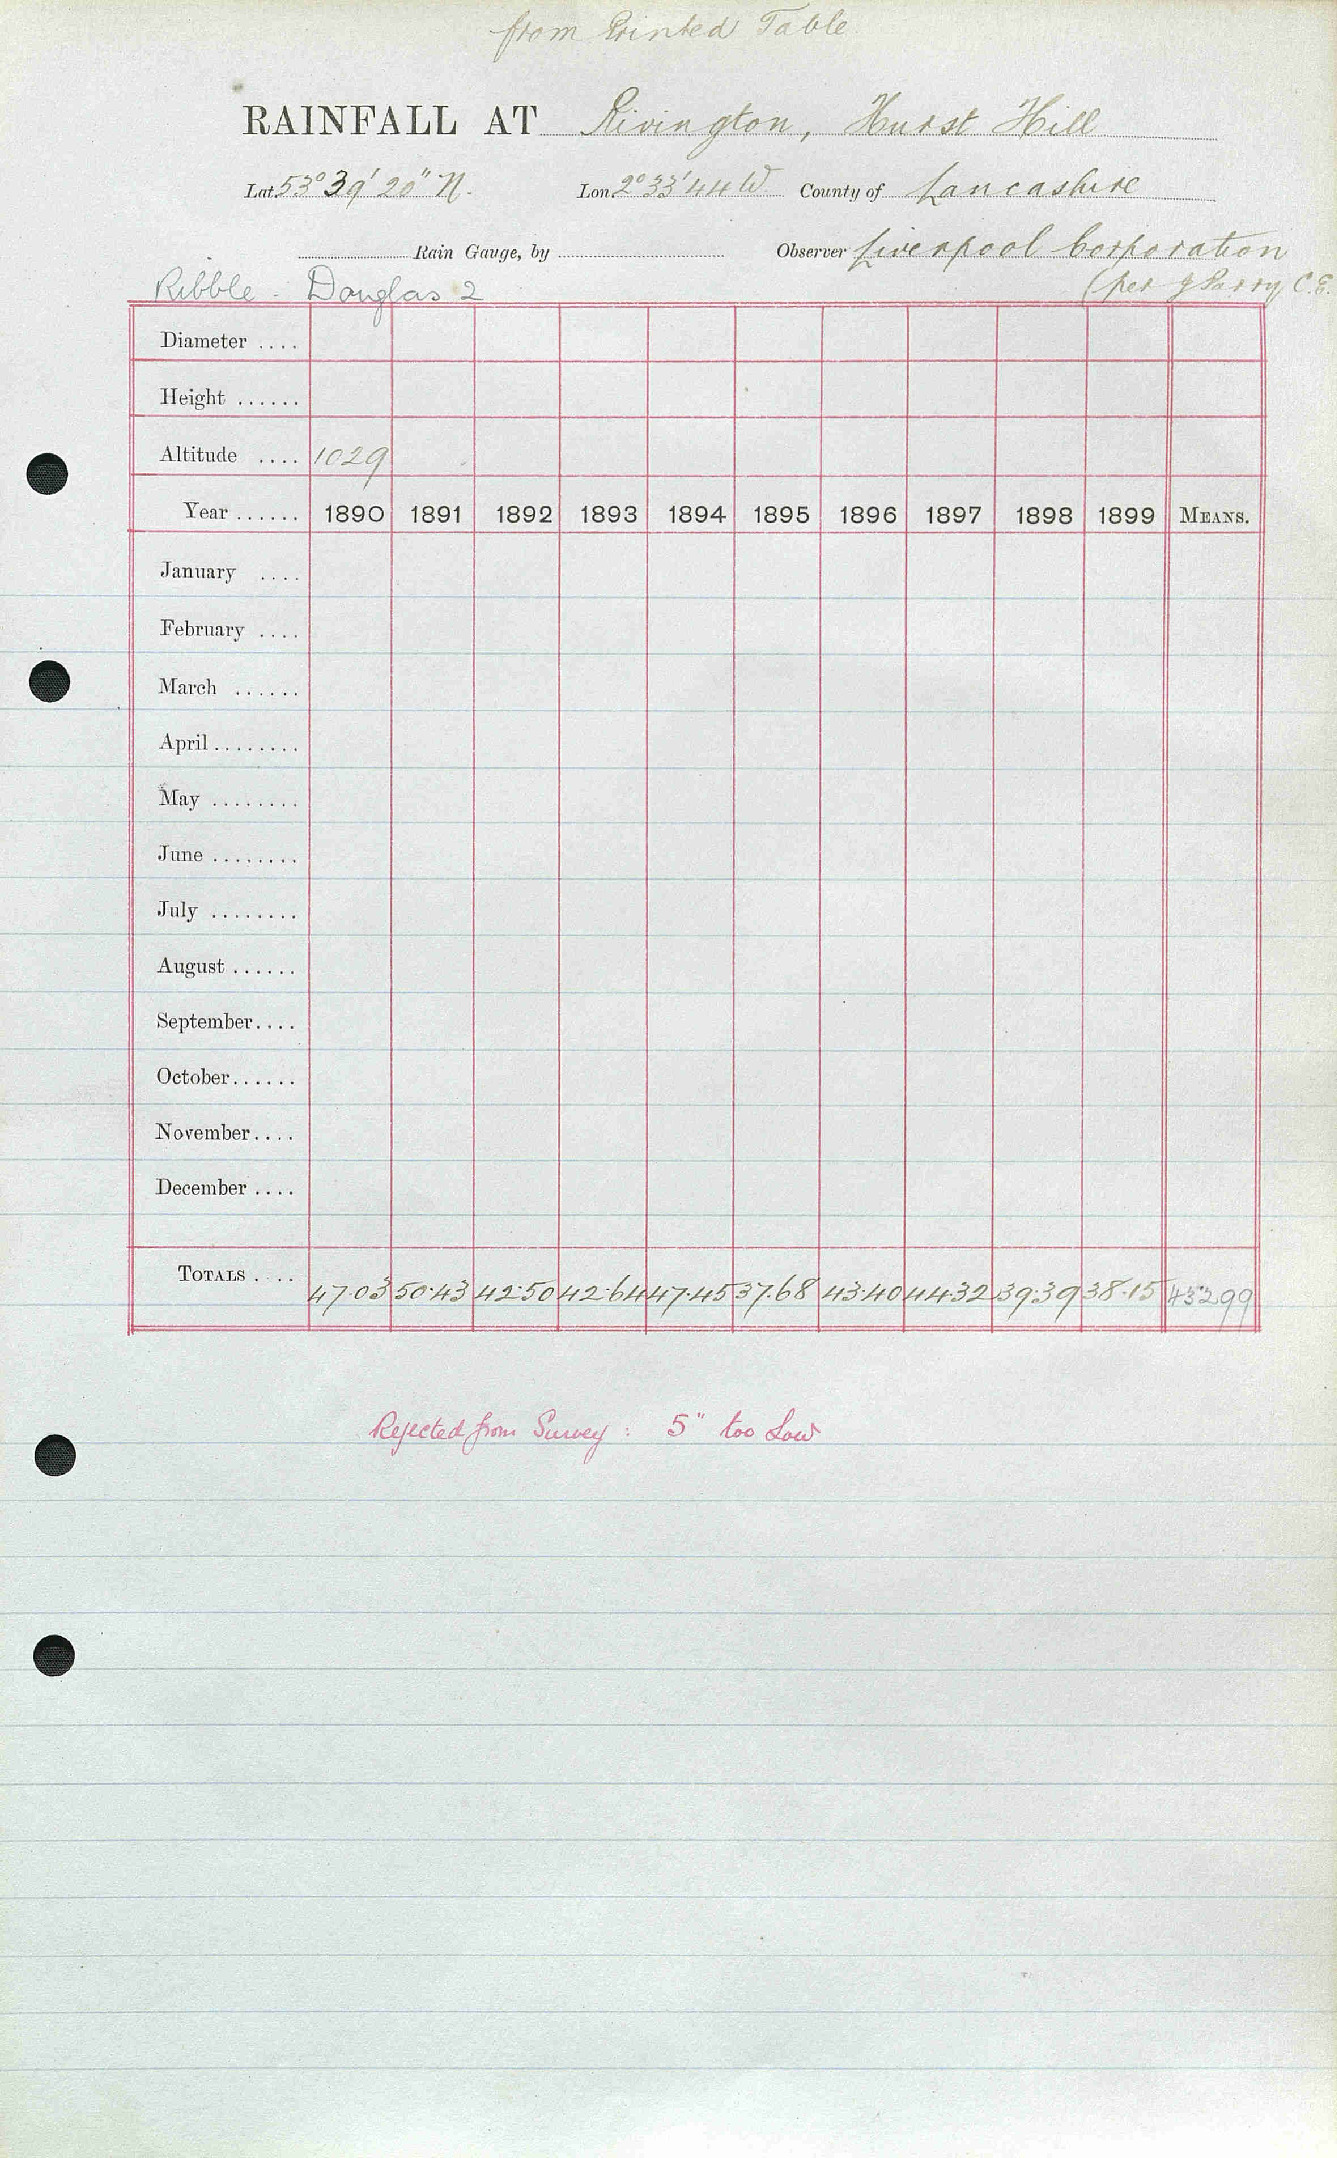 from Printed Table
RAINFALL AT Rivington, Hurst Hill
Lat. 53° 39' 20" N. Lon. 2° 33' 44 W County of Lancashire
Rain Gauge, by Observer Liverpool Corporation
(per J Parry C.E.
Ribble - Douglas 2
Diameter ....
Height ......
Altitude .... 1029
Year ...... 1890 1891 1892 1893 1894 1895 1896 1897 1898 1899 MEANS.
January ....
February ....
March ......
April ........
May ........
June ........
July ........
August ......
September....
October......
November....
December ....
TOTALS .... 47.03 50.43 42.50 42.64 47.45 37.68 43.40 44.32 39.39 38.15 432.99
Rejected from Survey : 5" too Low